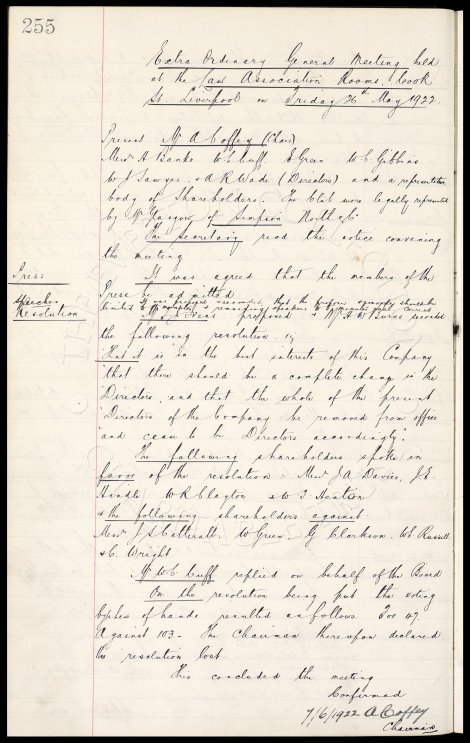 255
Extra Ordinary General Meeting held
at the Law Association Rooms Cook
St. Liverpool on Friday 26th May 1922.
Present Mr A Coffey (Chair)
Messrs H Banks W C Cuff E Green W C Gibbins
W J Sawyer & A R Wade (Directors) and a representative
body of Shareholders. The Club were legally represented
by Mr Glasgow of Simpson North & Co
The Secretary read the notice convening
the meeting
Press
It was agreed that the members of the
Press be admitted
Speeches
It was proposed & seconded that the before should be
limited to 10 minutes, remaining speakers to 5 minutes each Carried
Resolution
Mr proposed & Mr H W Davies seconded
the following resolution
"That it is in the best interests of this Company
"that there should be a complete change in the
"Directors, and that the whole of the present
"Directors of the Company be removed from office
"and cease to be Directors accordingly".
The following shareholders spoke in
favor of the resolution: Messrs J A Davies, J. E.
Hindle W R Clayton & W J Heaton
& the following shareholders against
Messrs J S Catterall, W Green, G Clarkson, W E Russell
& C. Wright
Mr W C Cuff replied on behalf of the Board
On the resolution being put the voting
by show of hands resulted as follows For 47
Against 103 - The Chairman thereupon declared
the resolution lost.
This concluded the meeting
Confirmed
7/6/1922 A Coffey
Chairman